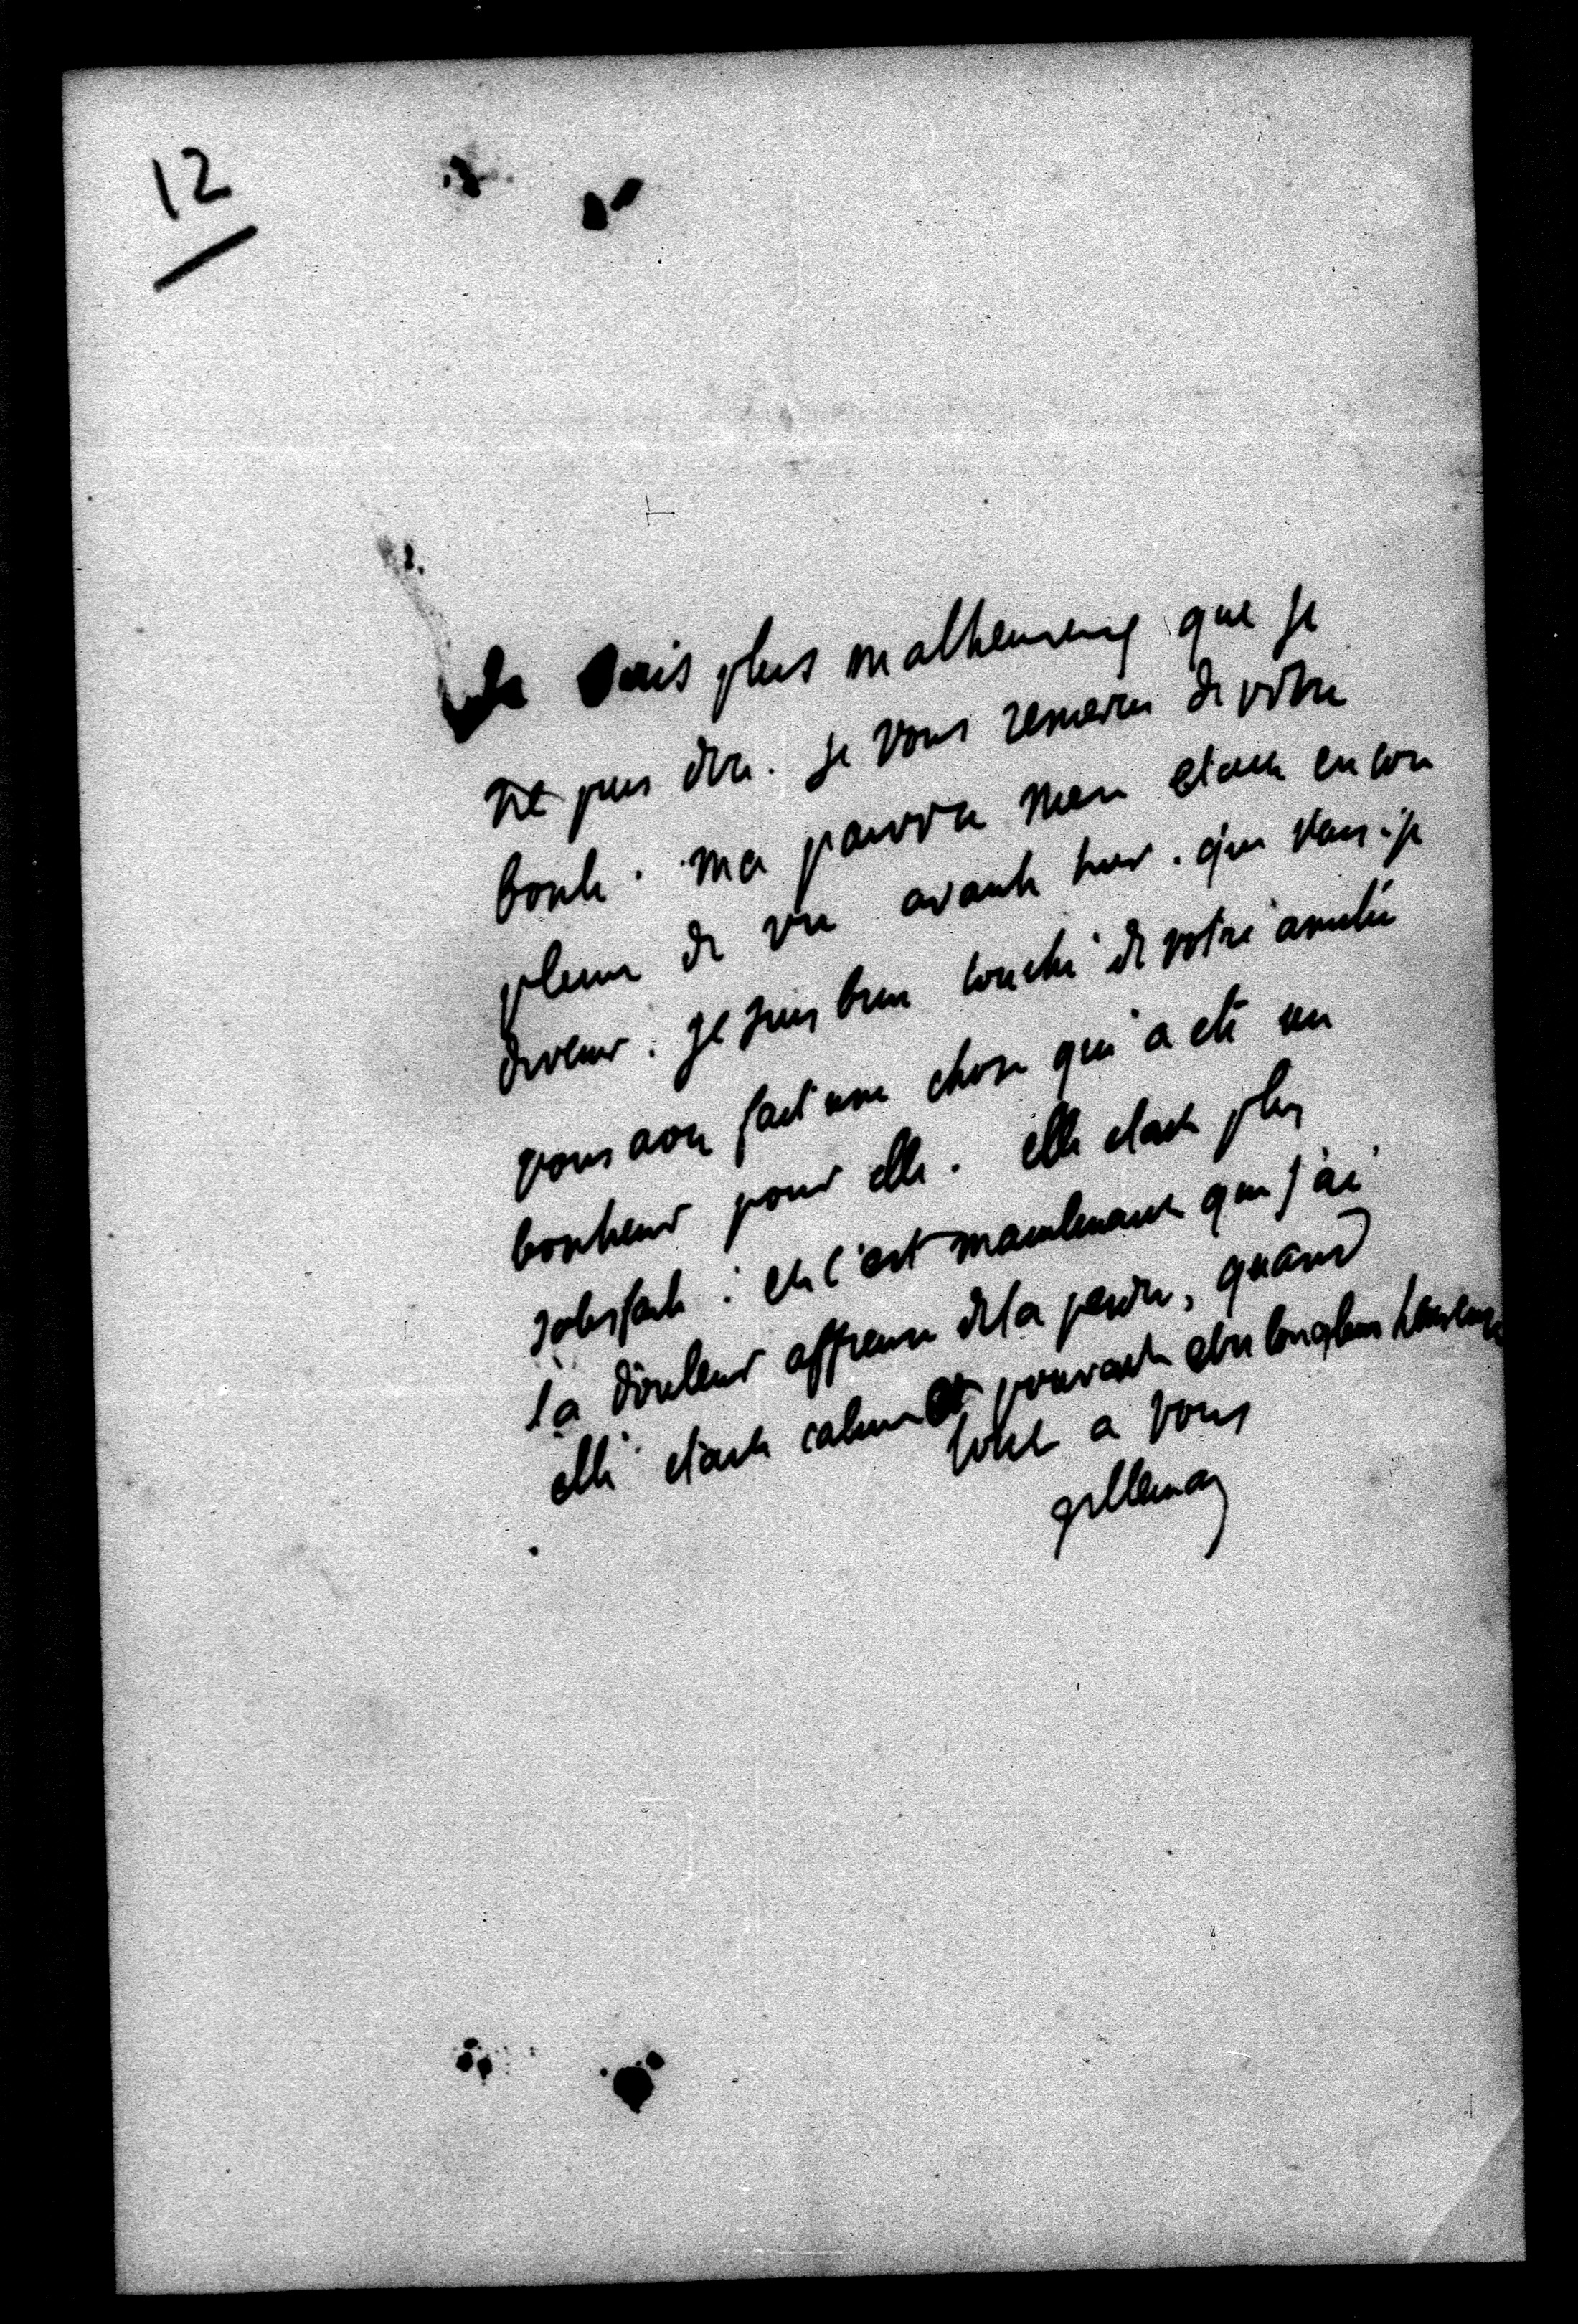 12
Je suis plus malheureux que je
ne puis dire. Je vous remercie de votre
bonté. ma pauvre mere etait encore
pleine de vie avant hier. que vais-je
devenir. Je suis bien touché de votre amitié
vous avez fait une chose qui a été un
bonheur pour elle. elle etait plus
satisfaite : et c'est maintenant que j'ai
la douleur affreuse de la perdre, quand
elle etait calme et pouvait etre longtems heureuse
tout a vous